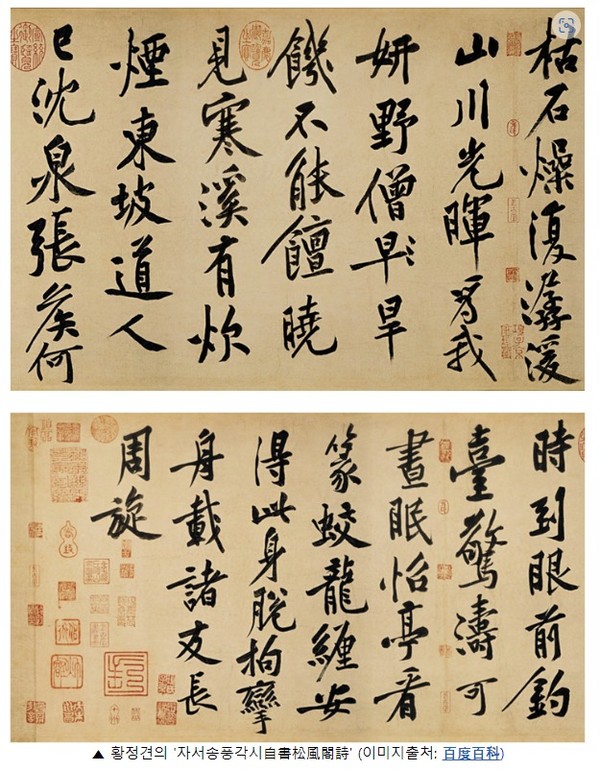 枯石燥復潺湲
山川光暉為我
妍野僧早旱
饑不能饘曉
見寒溪有炊
煙東坡道人
已沈泉張侯何
時到眼前釣
臺驚濤可
晝眠怡亭看
篆蛟龍纏安
得此身脫拘攣
舟載諸友長
周旋
▲ 황정견의 '자서송풍각시自書松風閣詩' (이미지출처: 百度百科)